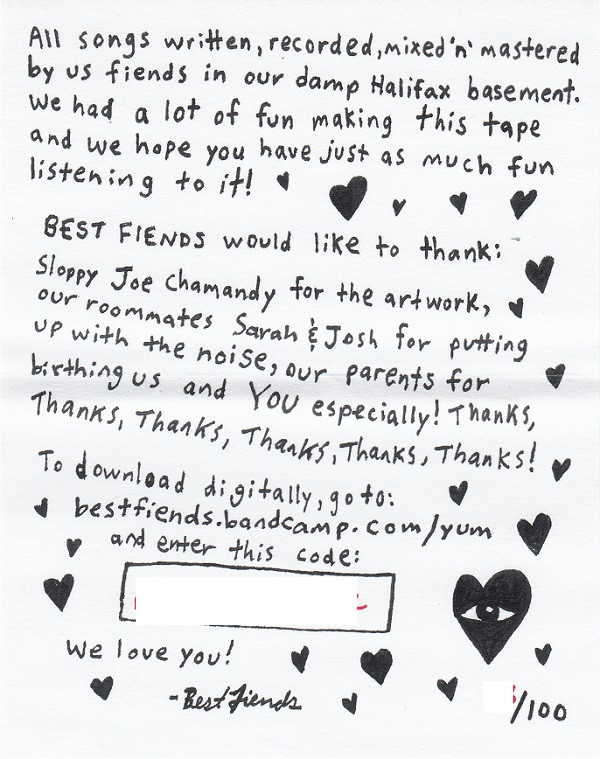 All songs written, recorded, mixed 'n' mastered
by us fiends in our damp Halifax basement.
We had a lot of fun making this tape
and we hope you have just as much fun
listening to it!
BEST FIENDS would like to thank:
Sloppy Joe Chamandy for the artwork,
our roommates Sarah & Josh for putting
up with the noise, our parents for
birthing us and YOU especially! Thanks,
Thanks, Thanks, Thanks, Thanks, Thanks!
To download digitally, go to:
bestfiends.bandcamp.com/yum
and enter this code:
We love you!
- Best fiends
/100